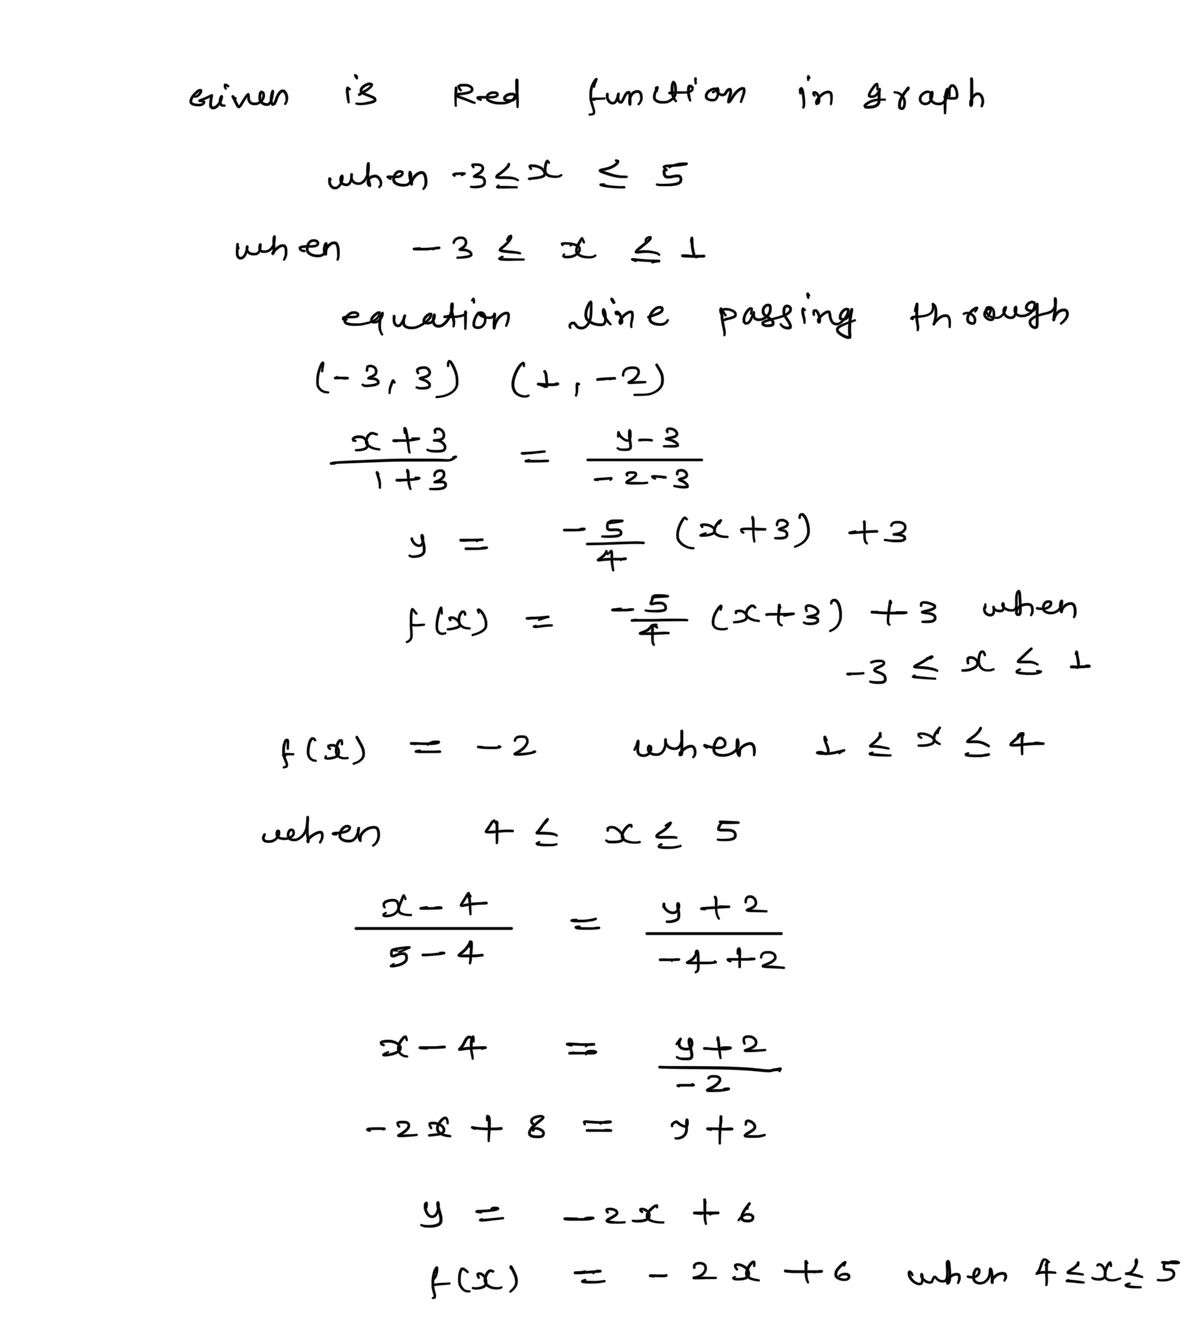 Given is Red function in graph
when -3 ≤ x ≤ 5
when -3 ≤ x ≤ 1
equation line passing through
(-3, 3) (1, -2)
(x + 3)/(1 + 3) = (y - 3)/(-2 - 3)
y = -5/4 (x + 3) + 3
f(x) = -5/4 (x + 3) + 3 when
-3 ≤ x ≤ 1
f(x) = -2 when 1 ≤ x ≤ 4
when 4 ≤ x ≤ 5
(x - 4)/(5 - 4) = (y + 2)/(-4 + 2)
x - 4 = (y + 2)/(-2)
-2x + 8 = y + 2
y = -2x + 6
f(x) = -2x + 6 when 4 ≤ x ≤ 5